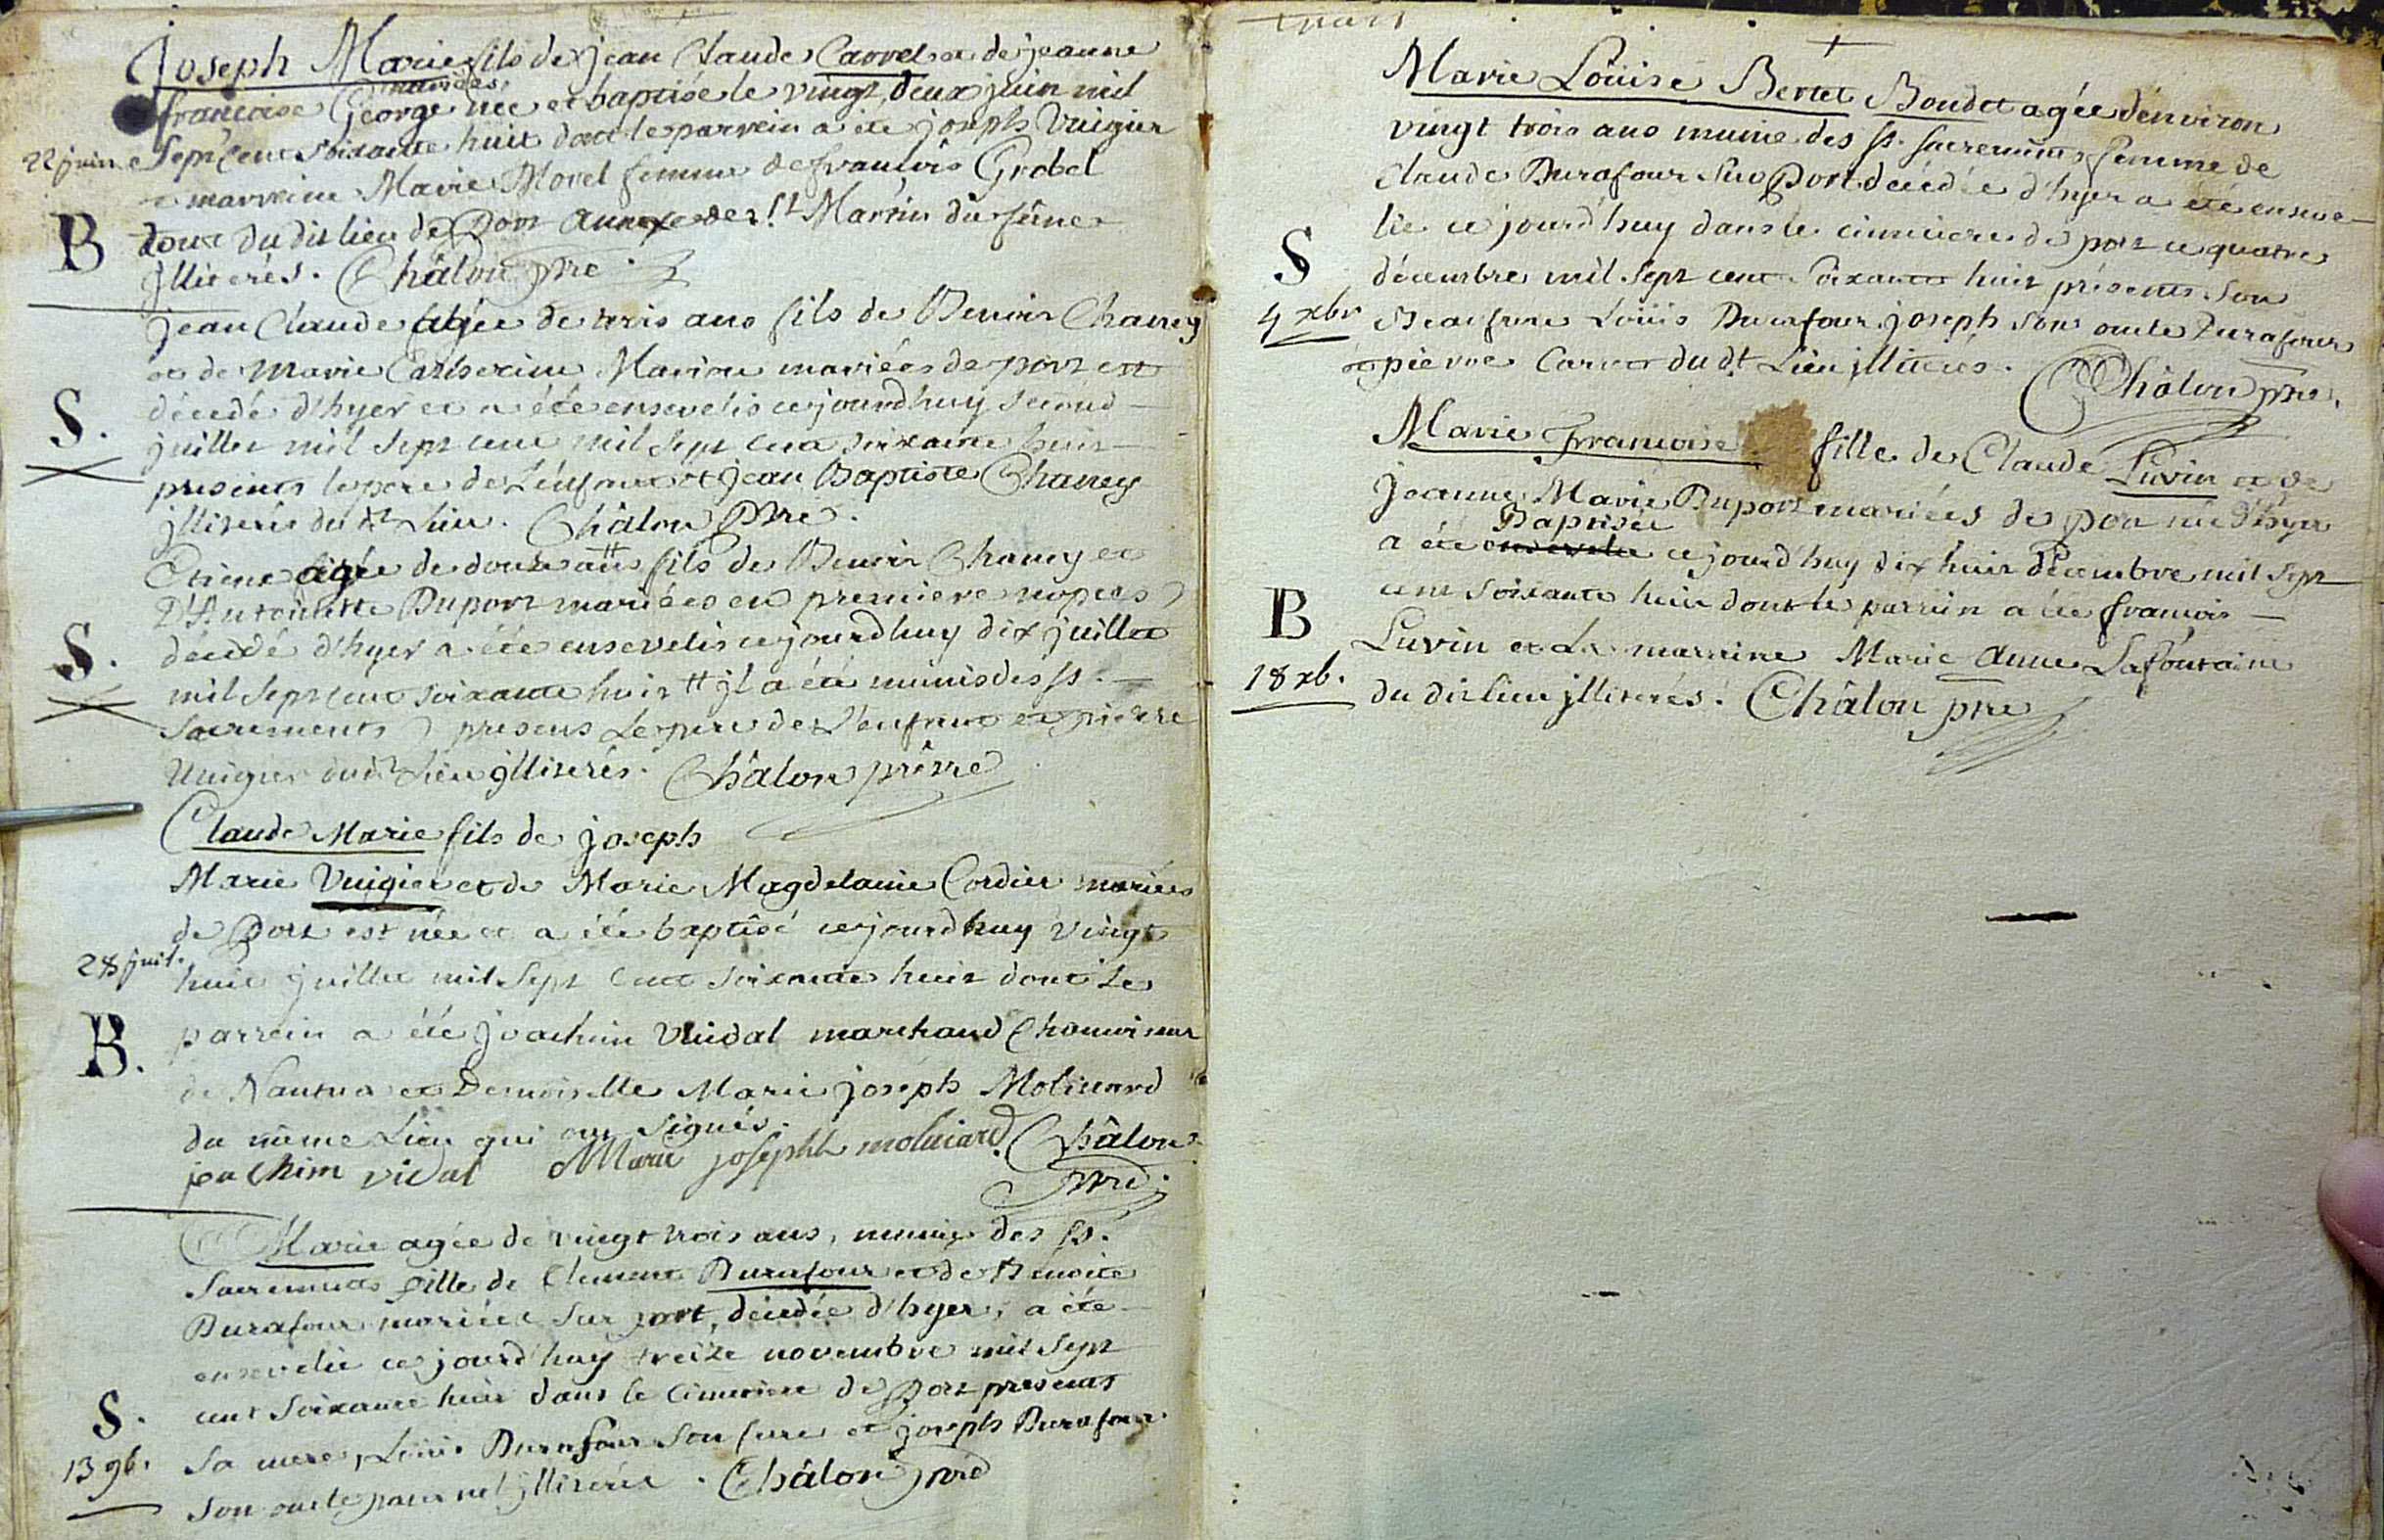 Joseph Marie fils de jean Claude Carrel et de jeanne
mariées
francoise George née et baptisé le vingt deux juin mil
22 juin e Sept Cent soixante huit dont le parrein a été joseph Vuigier
et marreine Marie Morel femme de francois Grobel
B tout du dit lieu de Port annexe de St Martin du frêne
jlliterés. Châlon ptre
jean Claude agée de trois ans fils de Benoit Chaney
et de Marie Catherine Marion mariées de port est
décedé d'hyer et a été ensevelis cejourdhuy second
S. juillet mil sept cent mil sept cent soixante huit
presents le pere de L'enfant et jean Baptiste Chaney
jlliterés du dt Lieu. Châlon Ptre.
Etiene agée de douze ans fils de Benoit Chaney et
D'Antoinette Duport mariées en premiere nopces
S. décedé d'hyer a été ensevelis cejourdhuy dix juillet
mil sept cent soixante huit # jl a été munis des ss.
Sacrements presens Le pere de L'enfant et pierre
Vuigier dudt Lieu jlliterés. Châlon prêtre
Claude Marie fils de joseph
Marie Vuigier et de Marie Magdelaine Cordier mariées
de Port est née et a été baptisé cejourdhuy vingt
28 juil. huit juillet mil sept cent soixante huit dont Le
B. parrein a été joachim Vuidal marchand Chamoiseur
de Nantua et Demoiselle Marie joseph Molinard
du même Lieu qui ont signés.
joachim vidal Marie josephe moliniard Châlon
Ptre.
Marie agée de vingt trois ans, munie des ss.
Sacrements fille de Clement Durafour et de Benoite
Durafour mariées sur port, décedée d'hyer, a été
ensevelie ce jourd'huy treize novembre mil sept
S. cent soixante huit dans le cimetiere de Port presents
13 9b. Sa mere, Loüis Durafour son frere et joseph Durafour
son oncle paternel jlliterés. Châlon ptre
Marie Loüise Bertet Boudet agée d'environ
vingt trois ans munie des ss. sacrements femme de
Claude Durafour sur Port decedée d'hyer a été enseve-
S lie ce jourd'huy dans le cimetiere de port ce quatre
décembre mil sept cent soixante huit présents son
4 xbr Beaufrere Loüis Durafour joseph son oncle Durafour
et pierre Carrel du dt Lieu jlliterés.
Châlon ptre.
Marie Francoise fille de Claude Luvin et de
jeanne Marie Duport mariées de port née d'hyer
Baptisée
a été ensevelie ce jourd'huy dix huit décembre mil sept
B cent soixante huit dont le parrein a été francois
Luvin et La marreine Marie Anne Lafontaine
18 xb. du dit lieu jlliterés. Châlon ptre